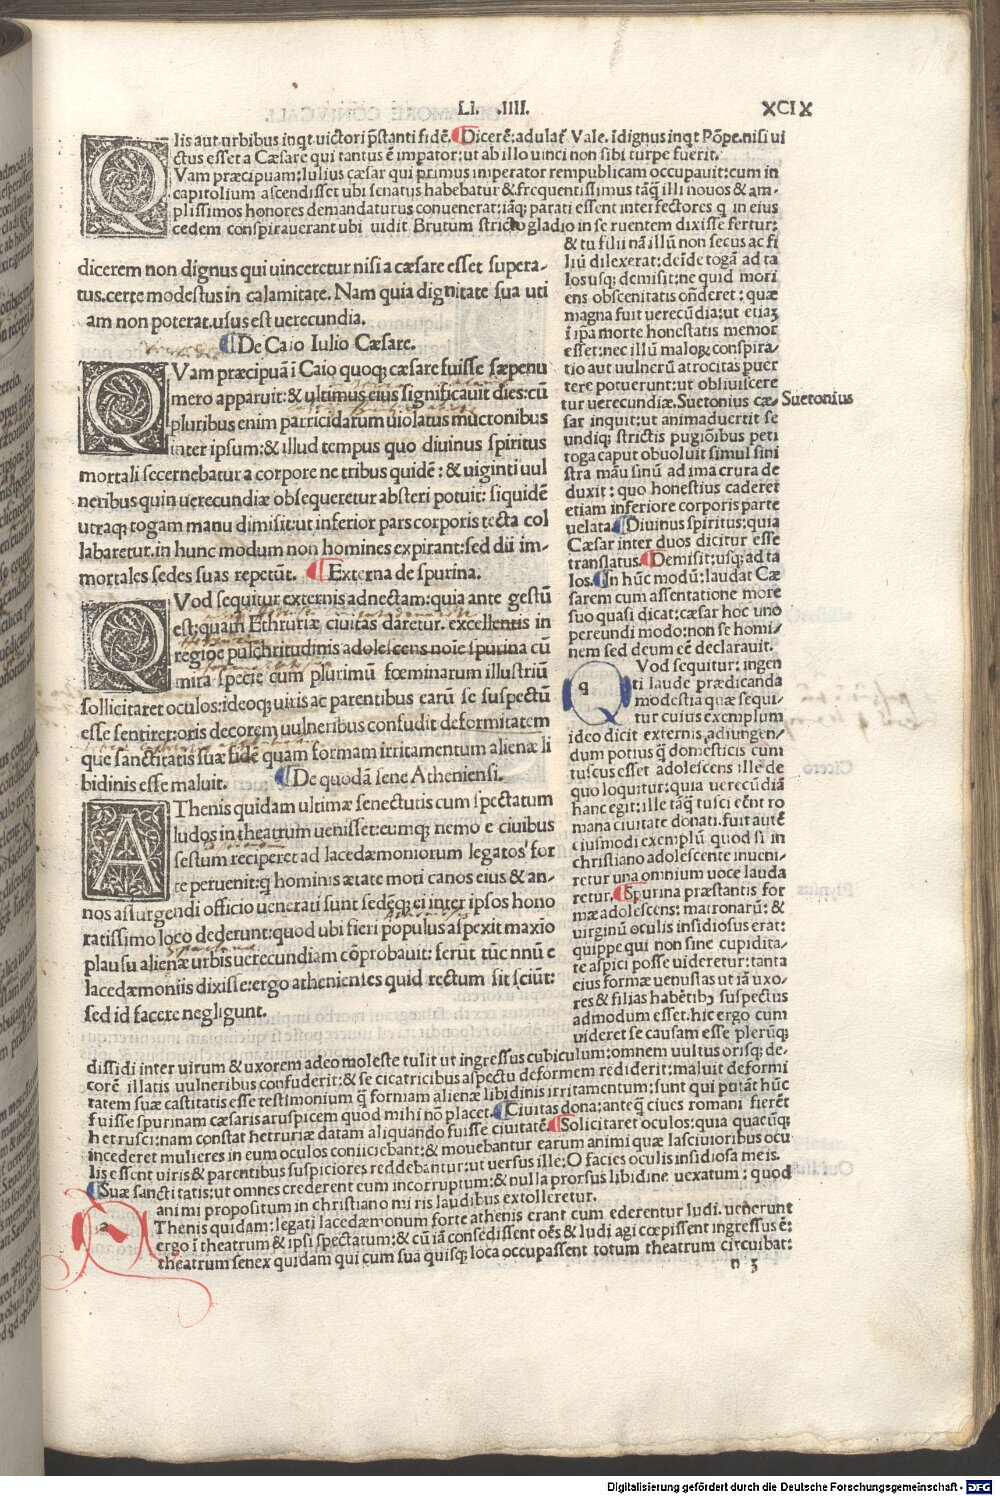 LI. .IIII. XCIX
Qlis aut urbibus inqt uictori p̄stanti fidē. Dicerē: adulat᷑ Vale. īdignus inqt Pōpe. nisi ui
ctus esset a Cæsare qui tantus ē impator: ut ab illo uinci non sibi turpe fuerit.
Vam præcipuam: Iulius cæsar qui primus imperator rempublicam occupauit: cum in
capitolium ascendisset ubi senatus habebatur & frequentissimus tāq̄ illi nouos & am-
plissimos honores demandaturus conuenerat: iāq; parati essent interfectores q in eius
cedem conspirauerant ubi uidit Brutum stricto gladio in se ruentem dixisse fertur:
dicerem non dignus qui uinceretur nisi a cæsare esset supera-
tus. certe modestus in calamitate. Nam quia dignitate sua uti
am non poterat. usus est uerecundia.
De Caio Iulio Cæsare.
QVam præcipuā ī Caio quoq; cæsare fuisse sæpenu
mero apparuit: & ultimus eius significauit dies: cū
pluribus enim parricidarum uiolatus mucronibus
inter ipsum: & illud tempus quo diuinus spiritus
mortali secernebatur a corpore ne tribus quidē: & uiginti uul
neribus quin uerecundiæ obsequeretur absteri potuit: siquidē
utraq; togam manu dimisit: ut inferior pars corporis tecta col
labaretur. in hunc modum non homines expirant: sed dii im-
mortales sedes suas repetūt. Externa de spurina.
QVod sequitur externis adnectam: quia ante gestū
est: quam Ethruriæ ciuitas daretur. excellentis in
regione pulchritudinis adolescens noīe spurina cū
mira specie cum plurimū fœminarum illustriū
sollicitaret oculos: ideoq; uiris ac parentibus earū se suspectū
esse sentiret: oris decorem uulneribus confudit deformitatem
que sanctitatis suæ fidē quam formam irritamentum alienæ li
bidinis esse maluit. De quodā sene Atheniensi.
AThenis quidam ultimæ senectutis cum spectatum
ludos in theatrum uenisset: eumq; nemo e ciuibus
sessum reciperet ad lacedæmoniorum legatos for
te peruenit: q̄ hominis ætate moti canos eius & an-
nos assurgendi officio uenerati sunt sedēq; ei inter ipsos hono
ratissimo loco dederunt: quod ubi fieri populus aspexit maxīo
plausu alienæ urbis uerecundiam cōprobauit: ferūt tūc unū e
lacedæmoniis dixisse: ergo athenienses quid rectum sit sciūt:
sed id facere negligunt.
& tu fili nā illū non secus ac fi
liū dilexerat: deīde togā ad ta
los usq; demisit: ne quid mori
ens obscenitatis oñderet: quæ
magna fuit uerecūdia: ut etiaȝ
ī ipa morte honestatis memor
esset: nec illū maloꝝ conspira-
tio aut uulnerū atrocitas puer
tere potuerunt: ut obliuiscere
tur uerecundiæ. Suetonius cæ-
sar inquit: ut animaduertit se
undiq; strictis pugiōibus peti
toga caput obuoluit simul sini
stra mau sinū ad ima crura de
duxit: quo honestius caderet
etiam inferiore corporis parte
uelata. Diuinus spiritus: quia
Cæsar inter duos dicitur esse
translatus. Demisit: usq; ad ta
los. In hūc modū: laudat Cæ
sarem cum assentatione more
suo quasi dicat: cæsar hoc uno
pereundi modo: non se homi-
nem sed deum eē declarauit.
Suetonius
q Vod sequitur: ingen
ti laude prædicanda
modestia quæ sequi-
tur cuius exemplum
ideo dicit externis adiungen-
dum potius q̄ domesticis cum
tuscus esset adolescens ille de
quo loquitur: quia uerecūdiā
hanc egit: ille tāq̄ tusci eēnt ro
mana ciuitate donati. fuit autē
eiusmodi exemplū quod si in
christiano adolescente inueni-
retur una omnium uoce lauda
retur. Spurina præstantis for
mæ adolescens: matronarū: &
uirginū oculis insidiosus erat:
quippe qui non sine cupidita-
te aspici posse uideretur: tanta
eius formæ uenustas ut iā uxo-
res & filias habētibꝰ suspectus
admodum esset. hic ergo cum
uideret se causam esse plerūq;
dissidi inter uirum & uxorem adeo moleste tulit ut ingressus cubiculum: omnem uultus orisq; de-
corē illatis uulneribus confuderit: & se cicatricibus aspectu deformem rediderit: maluit deformi
tatem suæ castitatis esse testimonium q̄ formam alienæ libidinis irritamentum: sunt qui putāt hūc
fuisse spurinam cæsaris aruspicem quod mihi nō placet. Ciuitas dona: anteq̄ ciues romani fierēt
hetrusci: nam constat hetruriæ datam aliquando fuisse ciuitatē. Solicitaret oculos: quia quacūq;
incederet mulieres in eum oculos coniiciebant: & mouebantur earum animi quæ lasciuioribus ocu
lis essent uiris & parentibus suspiciores reddebantur: ut uersus ille: O facies oculis insidiosa meis.
Suæ sanctitatis: ut omnes crederent eum incorruptum: & nulla prorsus libidine uexatum: quod
animi propositum in christiano miris laudibus extolleretur.
a Thenis quidam: legati lacedæmonum forte athenis erant cum ederentur ludi. uenerunt
ergo ī theatrum & ipsi spectatum: & cū iā consedissent oēs & ludi agi cœpissent ingressus ē:
theatrum senex quidam qui cum sua quisq; loca occupassent totum theatrum circuibat:
n 3
Digitalisierung gefördert durch die Deutsche Forschungsgemeinschaft - DFG